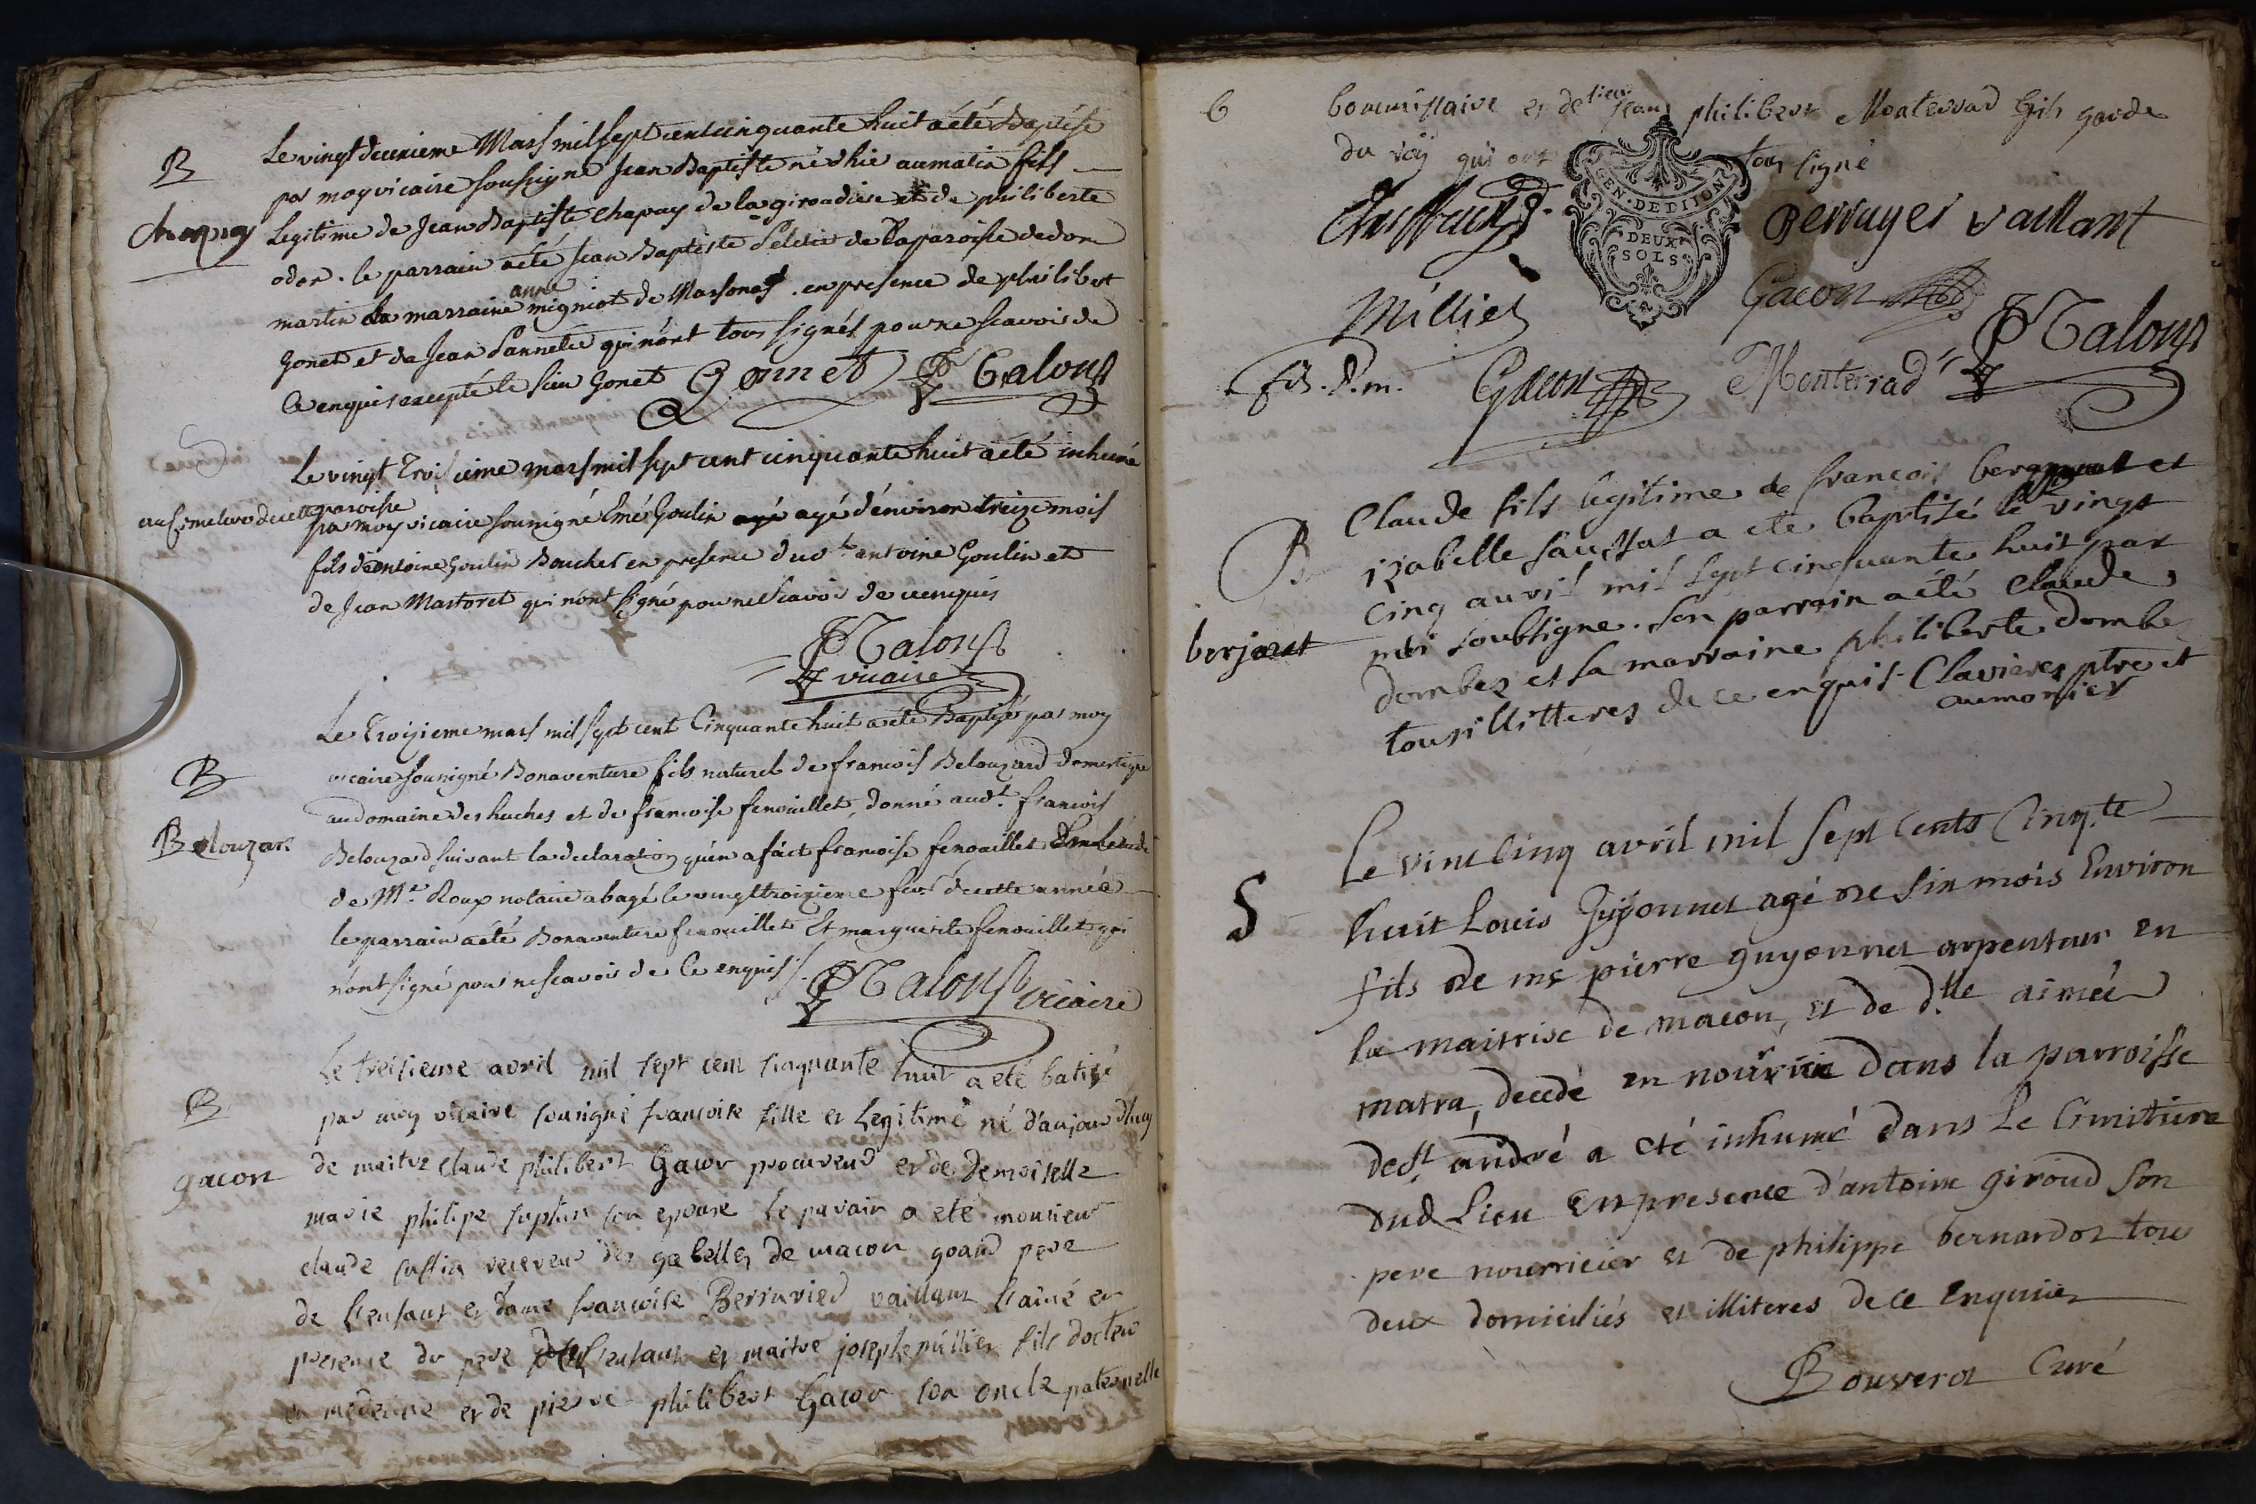 B
Le vingt deuxieme Mars mil sept cent cinquante huit a été Baptisé
par moy vicaire soussigné Jean Baptiste né d'hie au matin fils
Chapuy
Legitime de Jean Baptiste Chapuy de la giroudiere et de philiberte
odon . le parrain a été Jean Baptiste de la paroisse de dom
martin La marraine anne migniot de Marsonas . en presence de philibert
Gonet et de Jean Pannetié qui n'ont tous signés pour ne scavoir de
Ce enquis excepté le sieur Gonet Gonnet Talon
S
Le vingt Troisieme mars mil sept cent cinquante huit a été inhumé
au Cimetiere de cette paroisse
par moy vicaire sousigné Emé Goulin agé d'environ treize mois
fils d'antoine Goulin Boucher en presence dud. antoine Goulin et
de Jean Martoret qui n'ont signé pour ne scavoir de ce enquis
Talon
vicaire
Le Troizieme mars mil sept cent Cinquante huit a été Baptisé par moy
B
vicaire sousigné Bonaventure fils naturel de francois Belouzard domestique
au domaine des huches et de francoise fenouillet, donné aud.t francois
Belouzard
Belouzard suivant la declaration qu'en a fait francoise fenouillet
de M.e Roux notaire a bagé le vingt troizieme de cette année
le parrain a été Bonaventure fenouillet Et marguerite fenouillet qui
n'ont signé pour ne scavoir de Ce enquis Talon vicaire
Le treisieme avril mil sept cent cinquante huit a eté batisé
B
par moy vicaire sousigné francoise fille et legitime né d'aujourdhuy
gacon
de maitre claude philibert Gacon procureur et de demoiselle
marie philipe son epouse le parain a eté monsieur
claude receveur des gabelles de macon grand pere
de l'enfant et dame francoise Berruyer vaillant L'ainé en
presence du pere de l'enfant et maitre josephe millier fils docteur
en medecine et de pierre philibert Gacon son oncle paternelle
6
commissaire et de sieur jean philibert Monterrad fils garde
du roy qui ont tous signé
GEN. DE DIJON
DEUX SOLS
Perruyer vaillant
Millier
Gacon
Talon
fils. d. m.
Gacon
Monterrad
Claude fils legitime de francois et
B
izabelle saussat a ete baptisé le vingt
cinq avril mil sept cinquante huit par
berjorat
moi soubsigne . son parrain a été Claude
dombez et sa marraine philiberte dombez
tous illitteres de ce enquis. Clavieres ptre et
aumonier
Le vint cinq avril mil sept cents Cinq.te
S
huit Louis Guyonnet agé de six mois Environ
fils de me pierre guyonnet arpenteur en
la maitrise de macon, et de d.lle aimée
matra, decedé en nourrice dans la parroisse
de st. andré a eté inhumé dans Le Cimitiere
dud Lieu En presence d'antoine giroud son
pere nourricier et de philippe bernardot tous
deux domiciliés et illiteres de ce Enquis
Bouverot Curé